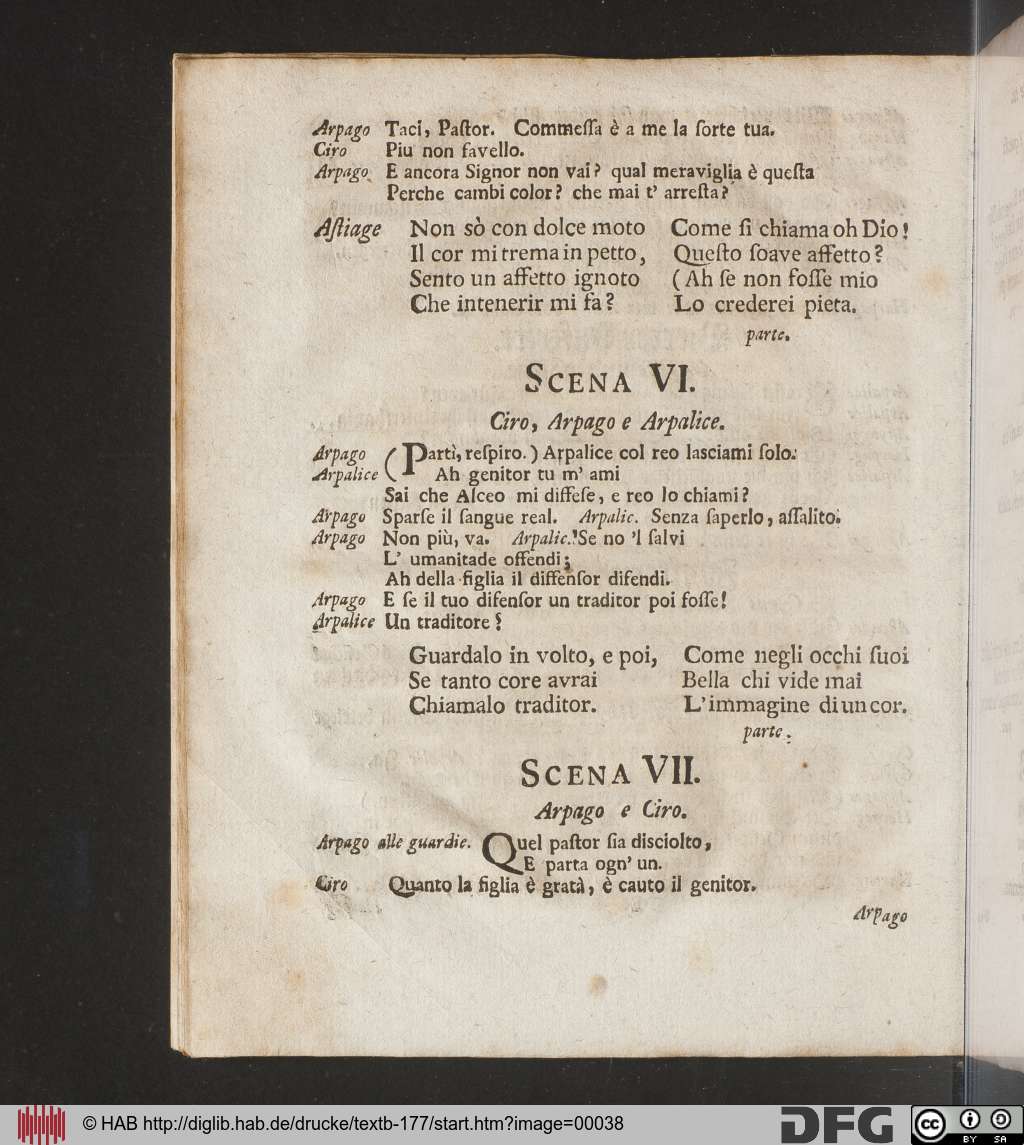 Arpago Taci, Paſtor. Commeſſa è a me la ſorte tua.
Ciro Piu non favello.
Arpago E ancora Signor non vai? qual meraviglia è queſta
Perche cambi color? che mai t' arreſta?
Aſtiage Non sò con dolce moto
Il cor mi trema in petto,
Sento un affetto ignoto
Che intenerir mi fa?
Come ſi chiama oh Dio!
Queſto ſoave affetto?
(Ah ſe non foſſe mio
Lo crederei pieta.
parte.
SCENA VI.
Ciro, Arpago e Arpalice.
Arpago (Partì, reſpiro.) Arpalice col reo laſciami ſolo.
Arpalice Ah genitor tu m' ami
Sai che Alceo mi diffeſe, e reo lo chiami?
Arpago Sparſe il ſangue real. Arpalic. Senza ſaperlo, aſſalito.
Arpago Non più, va. Arpalic. Se no 'l ſalvi
L' umanitade offendi;
Ah della figlia il diffenſor difendi.
Arpago E ſe il tuo difenſor un traditor poi foſſe!
Arpalice Un traditore?
Guardalo in volto, e poi,
Se tanto core avrai
Chiamalo traditor.
Come negli occhi ſuoi
Bella chi vide mai
L'immagine di un cor.
parte.
SCENA VII.
Arpago e Ciro.
Arpago alle guardie. Quel paſtor ſia disciolto,
E parta ogn' un.
Ciro Quanto la figlia è gratà, è cauto il genitor.
Arpago
© HAB http://diglib.hab.de/drucke/textb-177/start.htm?image=00038
DFG
cc BY SA